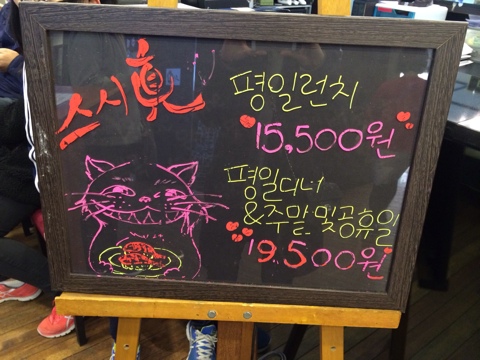 스시眞
평일런치
15,500원
평일디너
&주말 및 공휴일
19.500원